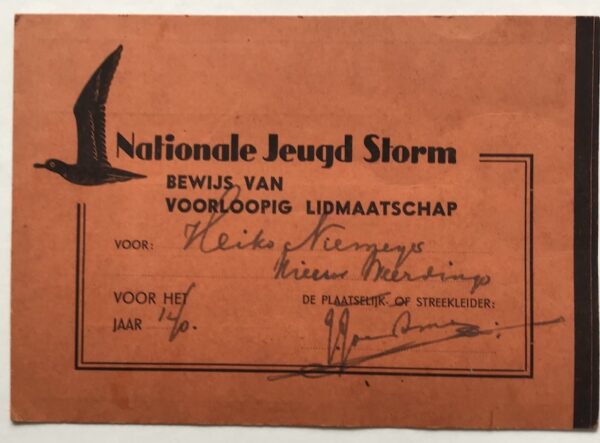 Nationale Jeugd Storm
BEWIJS VAN
VOORLOOPIG LIDMAATSCHAP
VOOR: Heiko Niemeyer
Nieuw Weerdinge
VOOR HET
DE PLAATSELIJK- OF STREEKLEIDER:
JAAR